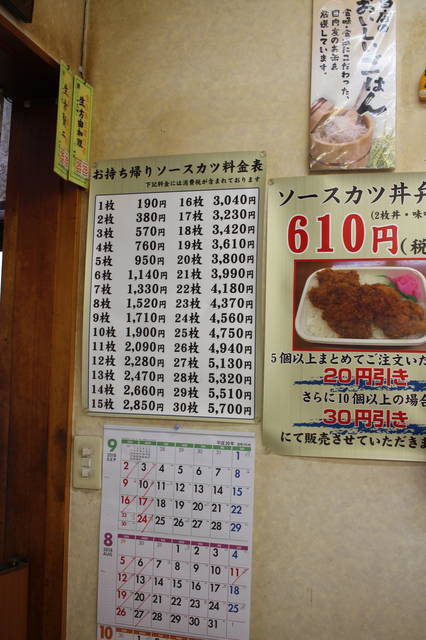 当店の
おいしいごはん
お持ち帰りソースカツ料金表
下記料金には消費税が含まれております
1枚 190円 16枚 3,040円
2枚 380円 17枚 3,230円
3枚 570円 18枚 3,420円
4枚 760円 19枚 3,610円
5枚 950円 20枚 3,800円
6枚 1,140円 21枚 3,990円
7枚 1,330円 22枚 4,180円
8枚 1,520円 23枚 4,370円
9枚 1,710円 24枚 4,560円
10枚 1,900円 25枚 4,750円
11枚 2,090円 26枚 4,940円
12枚 2,280円 27枚 5,130円
13枚 2,470円 28枚 5,320円
14枚 2,660円 29枚 5,510円
15枚 2,850円 30枚 5,700円
ソースカツ丼弁
(2枚丼・味
610円(税
5個以上まとめてご注文いた
20円引き
さらに10個以上の場合
30円引き
にて販売させていただきま
9 2018 SEP 平成30年
1
2 3 4 5 6 7 8
9 10 11 12 13 14 15
16 17 18 19 20 21 22
23 30 24 25 26 27 28 29
8 2018 AUG
1 2 3 4
5 6 7 8 9 10 11
12 13 14 15 16 17 18
19 20 21 22 23 24 25
26 27 28 29 30 31
10